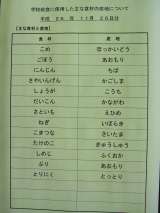 学校給食に使用した主な食材の産地について
平成 24 年 11月 26日分
【主な食材と産地】
食材 産地
こめ ほっかいどう
ごぼう あおもり
にんじん ちば
さやいんげん かごしま
しょうが こうち
だいこん かながわ
さといも えひめ
ねぎ いばらき
こまつな さいたま
たけのこ きゅうしゅう
しめじ ふくおか
ぶり あおもり
とりにく とっとり